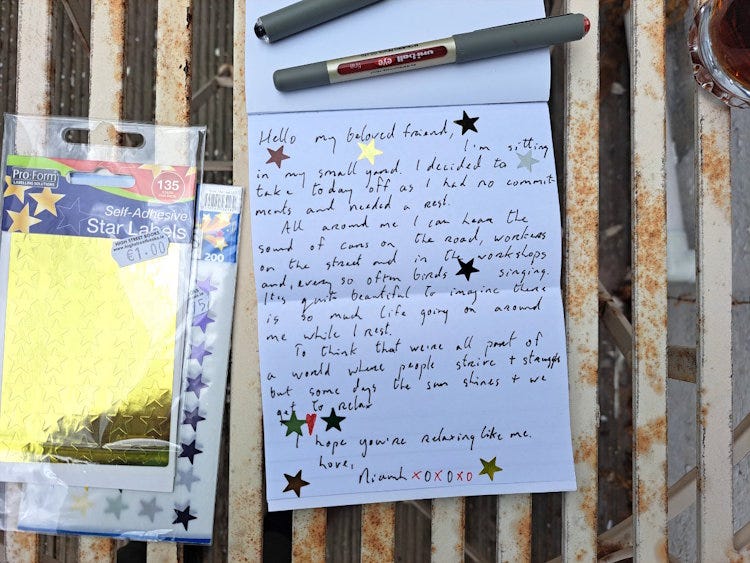 uni-ball eye
fine
Hello my beloved friend,
I'm sitting
in my small yard. I decided to
take today off as I had no commit-
ments and needed a rest.
All around me I can hear the
sound of cars on the road, workers
on the street and in the workshops
and, every so often birds singing.
It's quite beautiful to imagine there
is so much life going on around
me while I rest.
To think that we're all part of
a world where people strive + struggle
but some days the sun shines + we
get to relax
I hope you're relaxing like me.
Love,
Niamh xoxoxo
Pro Form
LABELLING SOLUTIONS
135
Self-Adhesive
Star Labels
HIGH STREET BOOKS
€1.00
200